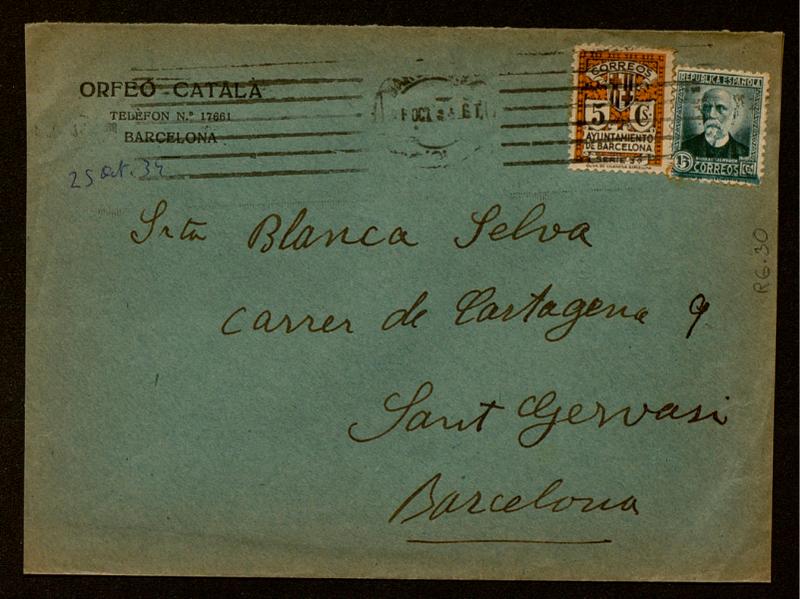 ORFEÓ CATALÀ
TELÈFON N.º 17661
BARCELONA
25 Oct. 34
OCT
CORREOS
5 Cs.
AYUNTAMIENTO
DE BARCELONA
SERIE
REPUBLICA ESPAÑOLA
15 CORREOS Cts
Srta Blanca Selva
Carrer de Cartagena 9
Sant Gervasi
Barcelona
R6.30